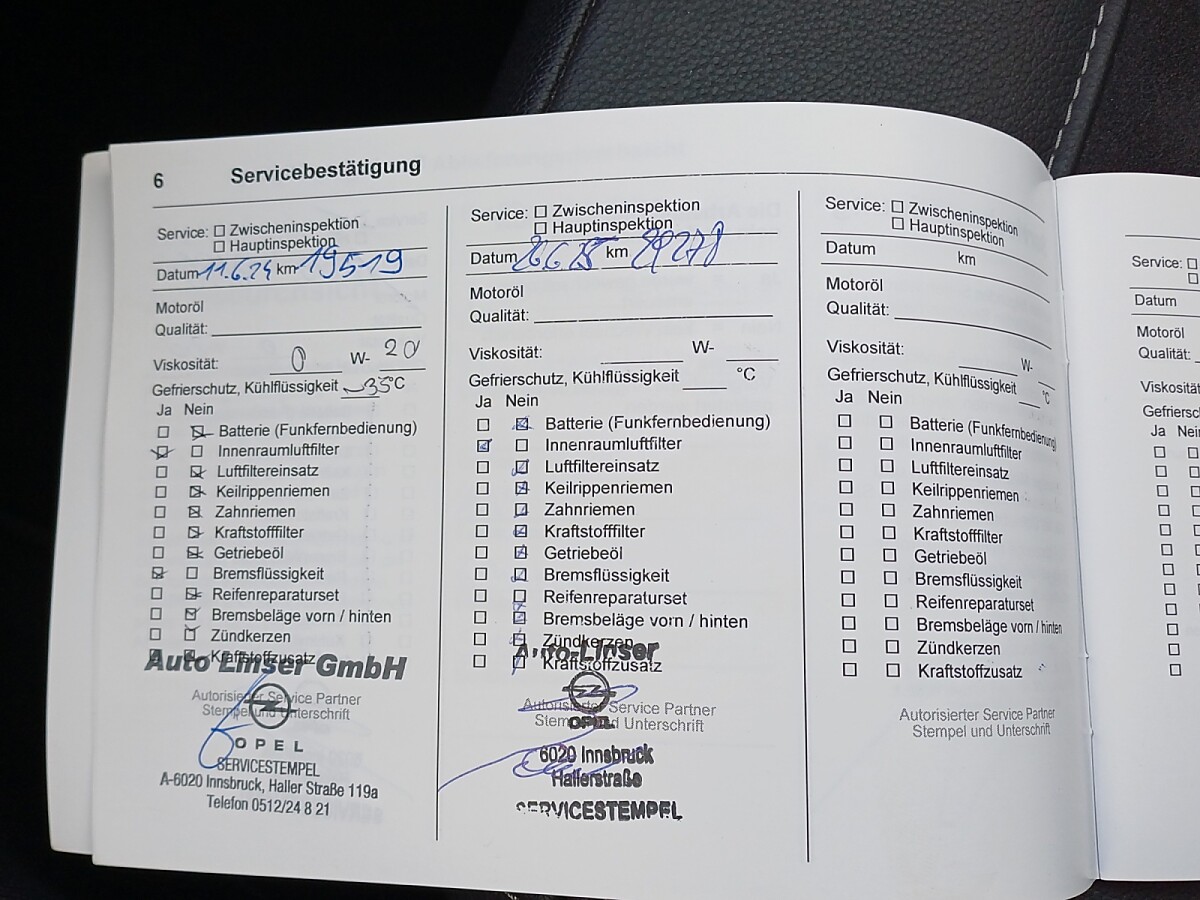 6 Servicebestätigung
Service: Zwischeninspektion
Hauptinspektion
Datum 11.6.24 km 19519
Motoröl
Qualität:
Viskosität: 0 W- 20
Gefrierschutz, Kühlflüssigkeit -35°C
Ja Nein
Batterie (Funkfernbedienung)
Innenraumluftfilter
Luftfiltereinsatz
Keilrippenriemen
Zahnriemen
Kraftstofffilter
Getriebeöl
Bremsflüssigkeit
Reifenreparaturset
Bremsbeläge vorn / hinten
Zündkerzen
Kraftstoffzusatz
Auto Linser GmbH
Autorisierter Service Partner
Stempel und Unterschrift
OPEL
SERVICESTEMPEL
A-6020 Innsbruck, Haller Straße 119a
Telefon 0512/24 8 21
Service: Zwischeninspektion
Hauptinspektion
Datum 26.6.25 km 29278
Motoröl
Qualität:
Viskosität: W-
Gefrierschutz, Kühlflüssigkeit °C
Ja Nein
Batterie (Funkfernbedienung)
Innenraumluftfilter
Luftfiltereinsatz
Keilrippenriemen
Zahnriemen
Kraftstofffilter
Getriebeöl
Bremsflüssigkeit
Reifenreparaturset
Bremsbeläge vorn / hinten
Zündkerzen
Kraftstoffzusatz
Auto-Linser
Autorisierter Service Partner
Stempel und Unterschrift
OPEL
6020 Innsbruck
Hallerstraße
SERVICESTEMPEL
Service: Zwischeninspektion
Hauptinspektion
Datum km
Motoröl
Qualität:
Viskosität: W-
Gefrierschutz, Kühlflüssigkeit °C
Ja Nein
Batterie (Funkfernbedienung)
Innenraumluftfilter
Luftfiltereinsatz
Keilrippenriemen
Zahnriemen
Kraftstofffilter
Getriebeöl
Bremsflüssigkeit
Reifenreparaturset
Bremsbeläge vorn / hinten
Zündkerzen
Kraftstoffzusatz
Autorisierter Service Partner
Stempel und Unterschrift
Service:
Datum
Motoröl
Qualität:
Viskosität:
Ja